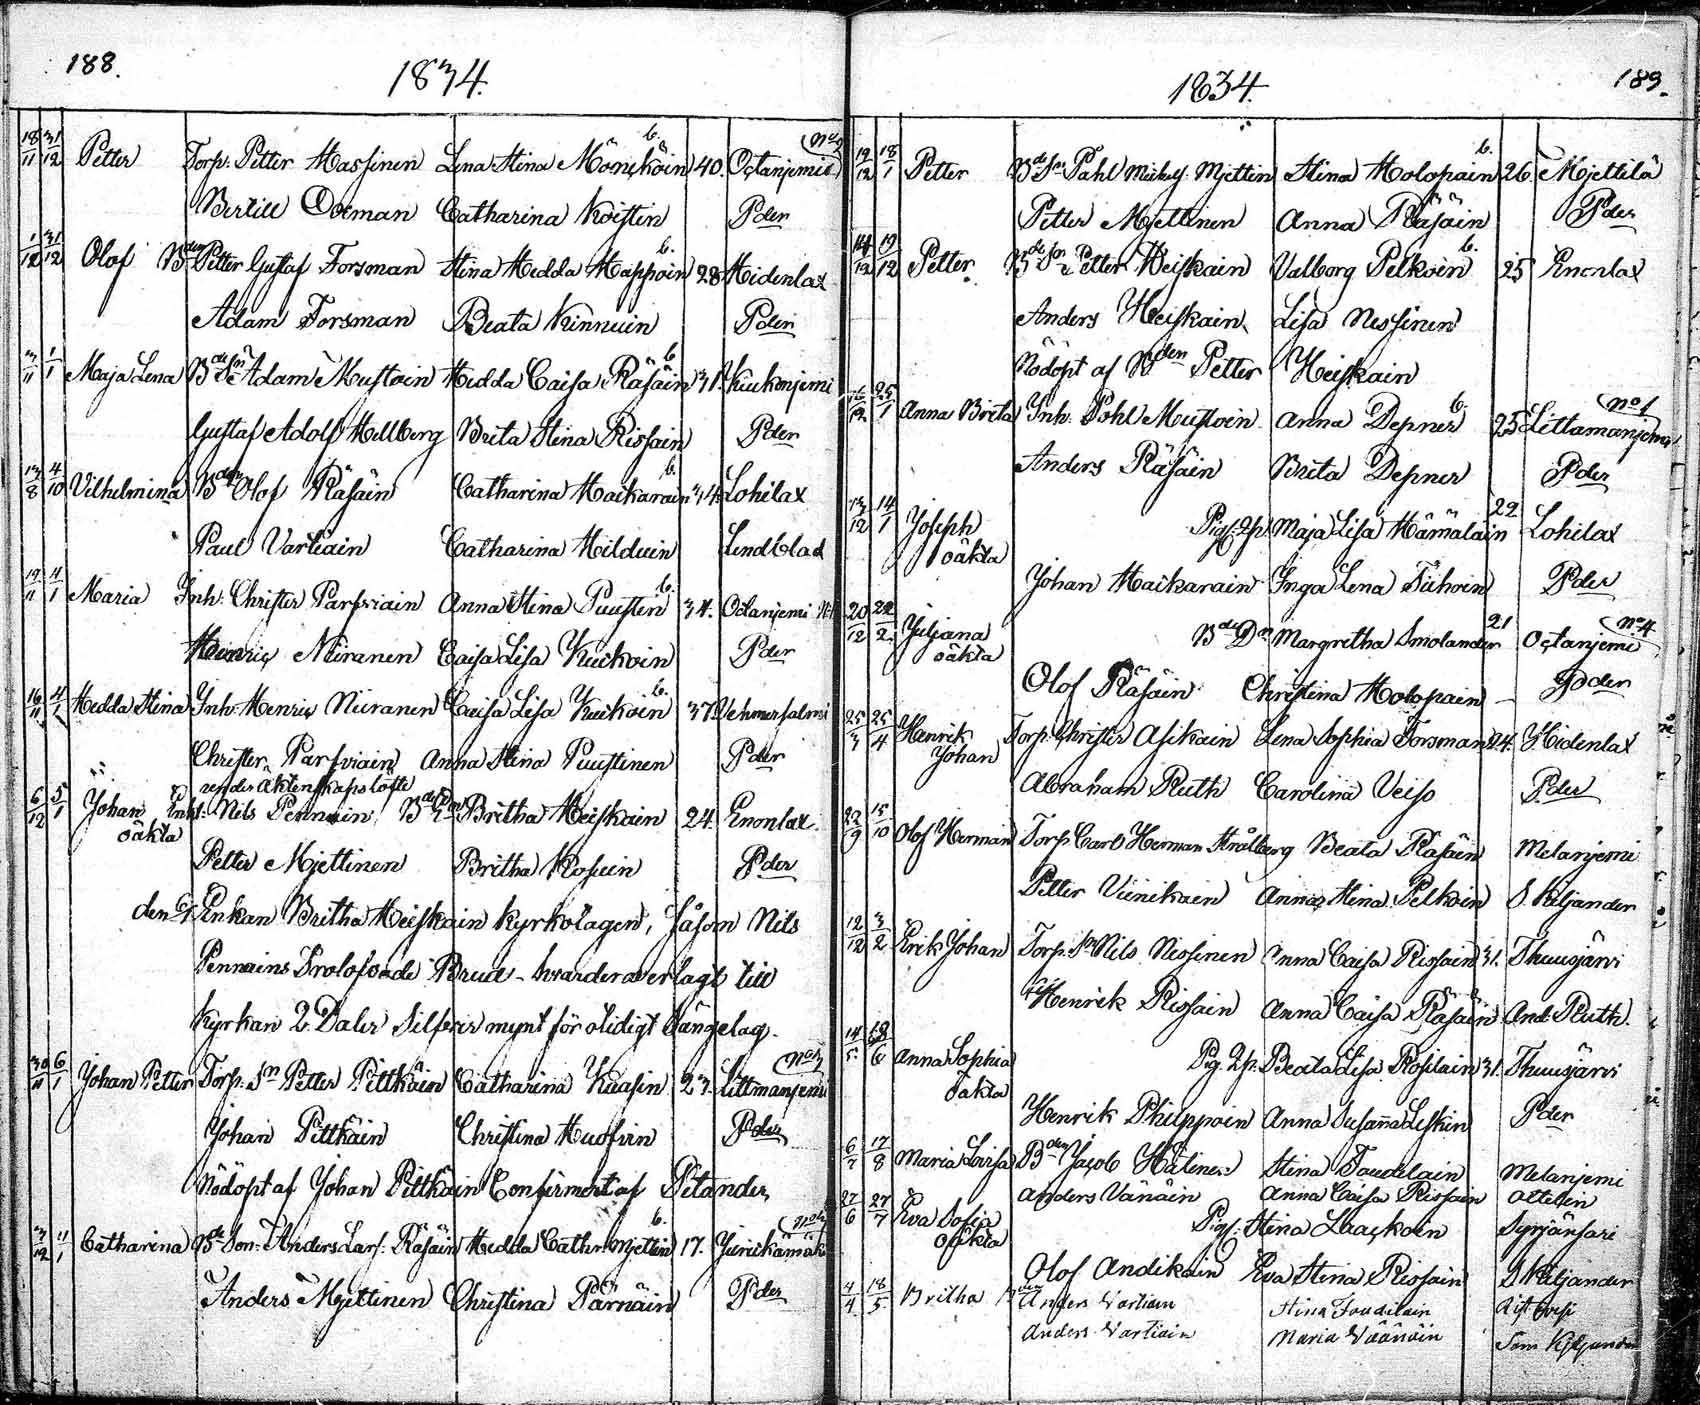 188.
1834.
18/11 31/12 Petter Torp: Petter Hassinen Lena Stina Möncköin 40. Octanjemi
Bertill Dorman Catharina Koistin Pder
1/12 31/12 Olof Bden Petter Gustaf Forsman Stina Hedda Happoin 28 Hidenlax
Adam Forsman Beata Kinnuin Pder
Maja Lena Bde Sn Adam Mustoin Hedda Caisa Räsäin 31 Kiukonjemi
Gustaf Adolf Hellberg Brita Stina Rissain Pder
13/8 4/10 Vilhelmina Bden Olof Räsäin Catharina Haikarain 34 Lohilax
Paul Vartiain Catharina Hilduin Lindblad
19/11 4/1 Maria Inh: Christer Parfviain Anna Stina Puustin 34. Octanjemi
Henric Niiranen Caisa Lisa Kuikoin Pder
16/11 4/1 Hedda Stina Inh: Henric Niiranen Caisa Lisa Kuikoin 37 Vehmersalmi
Christer Parfviain Anna Stina Puustinen Pder
under äktenskapslöfte
6/12 5/1 Johan Inh: Nils Pennain Britha Heiskain 24. Enonlax
oäkta
Petter Mjettinen Britha Rosuin Pder
den Enkan Britha Heiskain kyrkotagen, såsom Nils
Pennains Trolofvade Brud
kyrkan 2 Daler Silfver mynt för otidigt Sängelag.
30/11 6/1 Johan Petter Torp: Sn Petter Pittkäin Catharina Kuasin 27. Littmanjemi
Johan Pittkäin Christina Huofvin Pder
Nödöpt af Johan Pittkäin Confirmerat af Petander,
Catharina Bde Son: Anders Lars: Räsäin Hedda Cathr. Mjettin 17. Jurickämäki
Anders Mjettinen Christina Pärnäin Pder
1834.
189.
19/12 18/1 Petter Bde Sn Påhl Mjettin Stina Holopain 26. Mjettilä
Petter Mjettinen Anna Räsäin Pder
14/12 19/12 Petter Bde Sn Petter Heiskain Valborg Pelkoin 25 Enonlax
Anders Heiskain Lisa Nissinen
Nödöpt af Bden Petter Heiskain
25/1 Anna Brita Inh: Pohl Mustoin Anna Depner 25 No 1 Littamanjemi
Anders Räsäin Brita Depner Pder
13/12 14/1 Joseph Maja Lisa Hämäläin 22 Lohilax
oäkta
Johan Haikarain Inga Lena Tiihoin Pder
20/12 22/2 Juljana Bde Dr Margretha Smolander 21 No 4 Octanjemi
oäkta
Olof Räsäin Christina Holopain Pder
25/3 25/4 Henrik Johan Torp: Christer Asikain Lena Sophia Forsman 24. Hidenlax
Abraham Ruth Carolina Veiso Pder
22/9 15/10 Olof Herman Torp: Carl Herman Stålberg Beata Räsäin Melanjemi
Petter Viinikain Anna Stina Pelkoin S. Kiljander
12/12 3/2 Erik Johan Torp: Sn Nils Nissinen Anna Caisa Rissain 31. Thuusjärvi
Henrik Rissain Anna Caisa Räsäin And: Ruth.
Anna Sophia Pig. Beata Lisa Rossilain 31. Thuusjärvi
oäkta
Henrik Philippoin Anna Susanna Leskin Pder
6/7 17/8 Maria Lovisa Bden Jacob Hälinen Stina Taudilain Melanjemi
Anders Vänäin Anna Caisa Rissain
27/6 27/7 Eva Sofia Stina Laackoin Syrjänsari
oäkta
Olof Andikain Eva Stina Rissain S Kiljander
4/4 18/5 Britha Anders Vartiain Stina Taudilain
Anders Vartiain Maria Väänäin Sam Kiljander